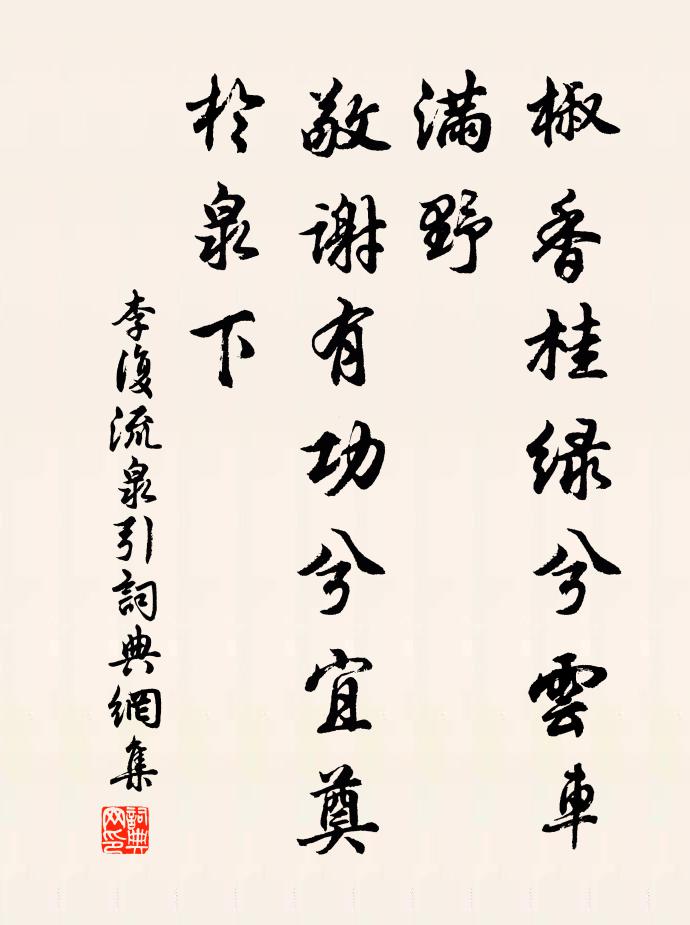 椒香桂緑兮雲車
滿野
敬謝有功兮宜奠
於泉下
李復流泉引詞典網集
詞典
网印